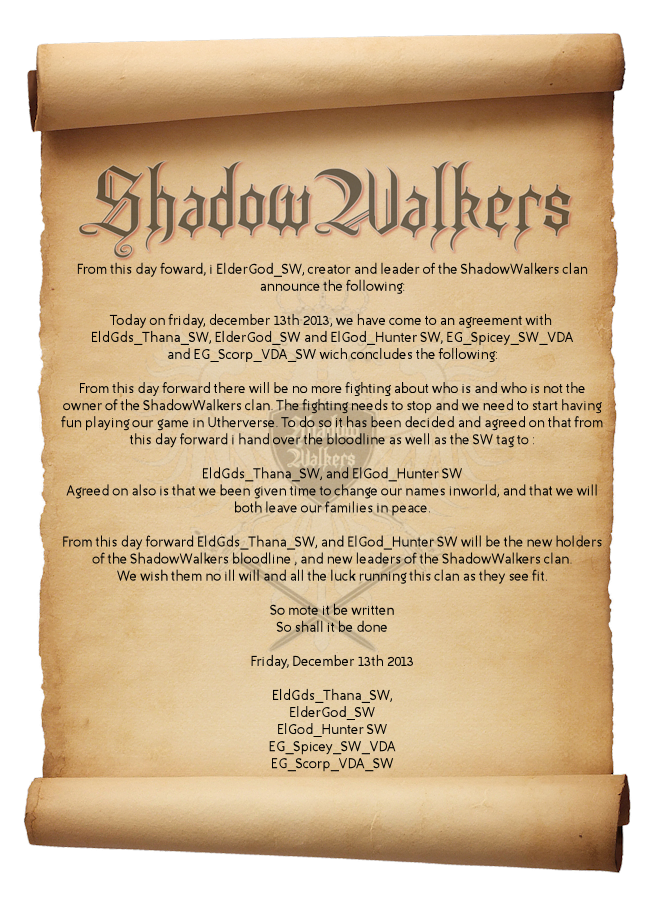 ShadowWalkers
From this day foward, i ElderGod_SW, creator and leader of the ShadowWalkers clan
announce the following:
Today on friday, december 13th 2013, we have come to an agreement with
EldGds_Thana_SW, ElderGod_SW and ElGod_Hunter SW, EG_Spicey_SW_VDA
and EG_Scorp_VDA_SW wich concludes the following:
From this day forward there will be no more fighting about who is and who is not the
owner of the ShadowWalkers clan. The fighting needs to stop and we need to start having
fun playing our game in Utherverse. To do so it has been decided and agreed on that from
this day forward i hand over the bloodline as well as the SW tag to :
Shadow
Walkers
EldGds_Thana_SW, and ElGod_Hunter SW
Agreed on also is that we been given time to change our names inworld, and that we will
both leave our families in peace.
From this day forward EldGds_Thana_SW, and ElGod_Hunter SW will be the new holders
of the ShadowWalkers bloodline , and new leaders of the ShadowWalkers clan.
We wish them no ill will and all the luck running this clan as they see fit.
So mote it be written
So shall it be done
Friday, December 13th 2013
EldGds_Thana_SW,
ElderGod_SW
ElGod_Hunter SW
EG_Spicey_SW_VDA
EG_Scorp_VDA_SW